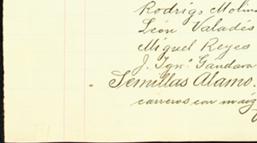 Rodrigo Molin
León Valadés
Miguel Reyes
J. Ign.º Gandara
Semillas Alamo.
carreros con maiz